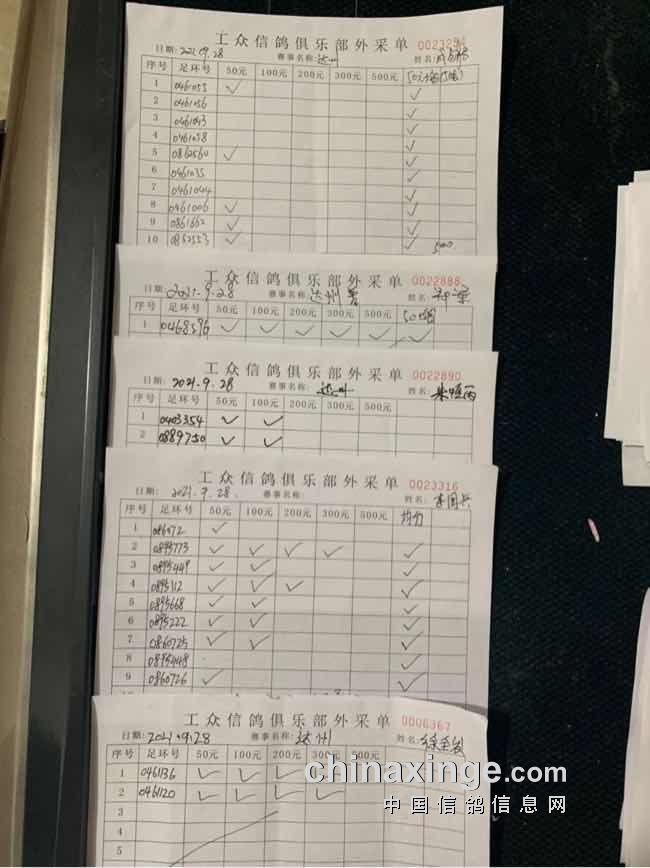 工众信鸽俱乐部外采单
日期: 2021.9.28 赛事名称: 达州 姓名:
序号 足环号 50元 100元 200元 300元 500元
1 0461055 ✓ ✓
2 0461056 ✓
3 0461043 ✓
4 0461058 ✓
5 0862560 ✓ ✓
6 0461035 ✓
7 0461044 ✓
8 0461006 ✓ ✓
9 0861662 ✓ ✓
10 0862553 ✓ ✓ 500
工众信鸽俱乐部外采单 0022888
日期: 2021.9.28 赛事名称: 达州 姓名:
序号 足环号 50元 100元 200元 300元 500元
1 0468596 ✓ ✓ ✓ ✓ ✓ ✓
工众信鸽俱乐部外采单 0022890
日期: 2021.9.28 赛事名称: 达州 姓名:
序号 足环号 50元 100元 200元 300元 500元
1 0403354 ✓ ✓
2 0889750 ✓ ✓
工众信鸽俱乐部外采单 0023316
日期: 2021.9.28. 赛事名称: 姓名: 李国兵
序号 足环号 50元 100元 200元 300元 500元 均分
1 086072 ✓
2 0895773 ✓ ✓ ✓ ✓ ✓
3 0895449 ✓ ✓ ✓
4 0895112 ✓ ✓ ✓ ✓
5 0895668 ✓ ✓ ✓
6 0895222 ✓ ✓ ✓
7 0860725 ✓ ✓ ✓
8 0895448 ✓
9 0860726 ✓ ✓
工众信鸽俱乐部外采单 0006367
日期: 2021.9.28 赛事名称: 达州 姓名:
序号 足环号 50元 100元 200元 300元 500元
1 0461136 ✓ ✓ ✓
2 0461120 ✓ ✓ ✓ ✓
3
4
5
chinaxinge.com
中国信鸽信息网